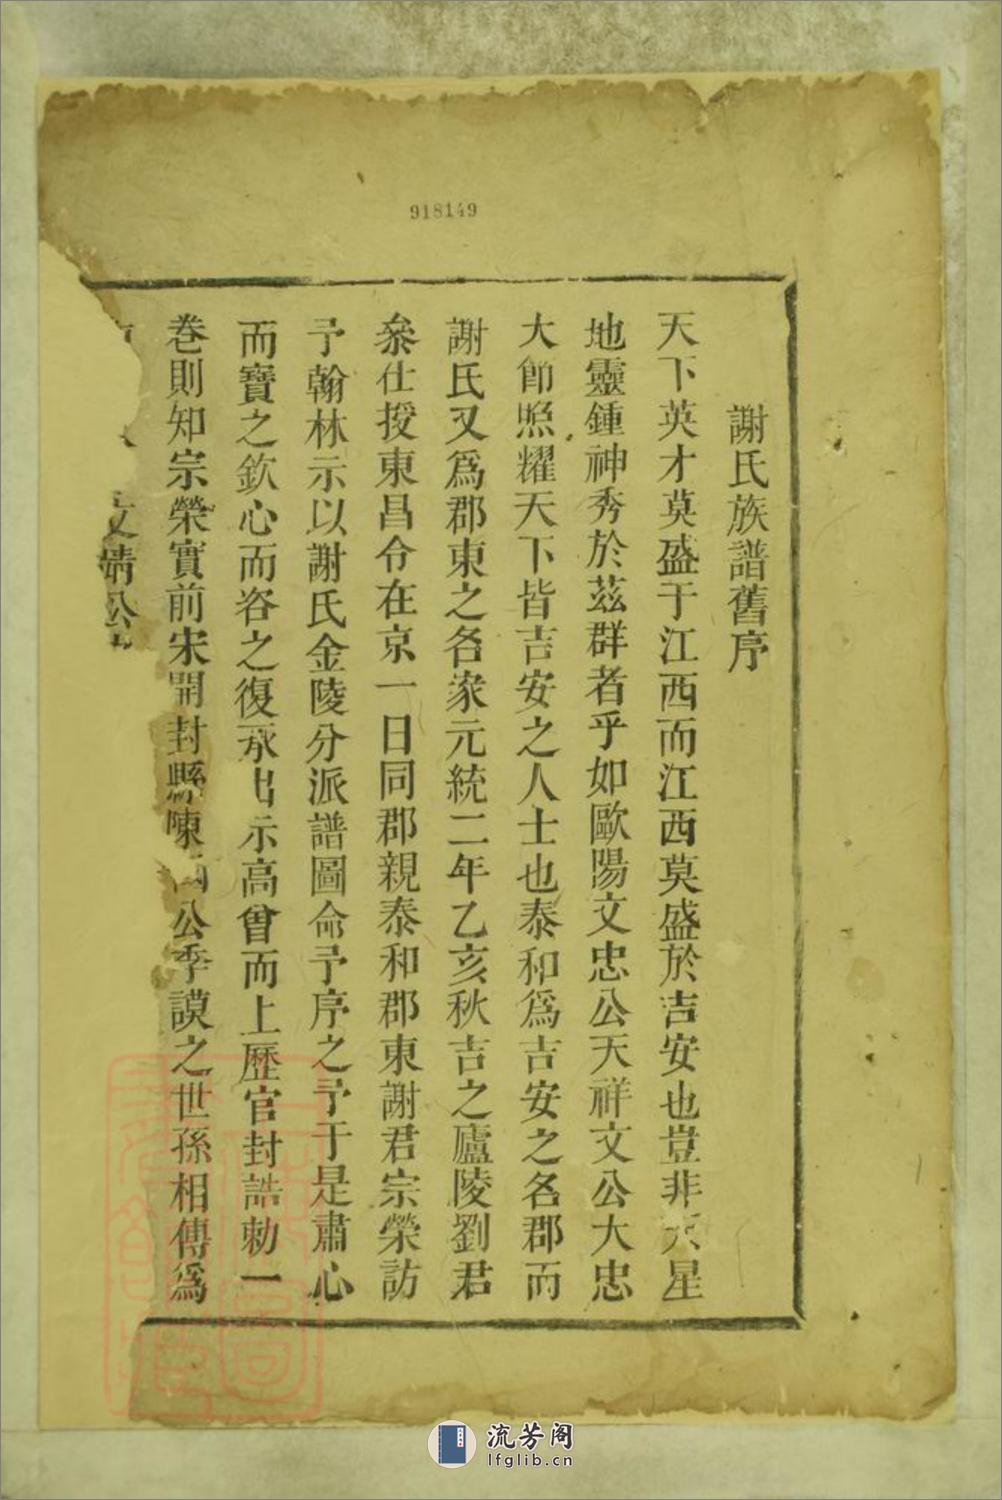 918149
謝氏族譜舊序
天下英才莫盛于江西而江西莫盛於吉安也豈非天星
地靈鍾神秀於茲群者乎如歐陽文忠公天祥文公大忠
大節照耀天下皆吉安之人士也泰和為吉安之名郡而
謝氏又為郡東之名家元統二年乙亥秋吉之廬陵劉君
叅仕授東昌令在京一日同郡親泰和郡東謝君宗榮訪
予翰林示以謝氏金陵分派譜圖命予序之予于是肅心
而寶之欽心而容之復承出示高曾而上歷官封誥勅一
卷則知宗榮實前宋開封縣陳公季謨之世孫相傳為
文靖公
流芳阁
lfglib.cn